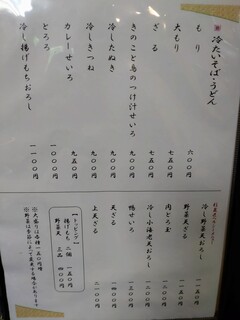 冷たいそば・うどん
もり 六〇〇円
大もり 七五〇円
ざる 七五〇円
きのこと鳥のつけ汁せいろ 九五〇円
冷したぬき 九〇〇円
冷しきつね 九〇〇円
カレーせいろ 九五〇円
とろろ 一〇〇〇円
冷し揚げもちおろし 一一〇〇円
冷し野菜天おろし 一一五〇円
野菜天ざる 一一五〇円
肉どろ玉
冷し小海老天おろし
鴨せいろ 一三〇〇円
天ざる 一四〇〇円
上天ざる 二一〇〇円
【トッピング】
揚げもち 二個 一五〇円
野菜天 三品 四〇〇円
※大盛りは各種一五〇円増
※野菜は季節によって変わる場合があります